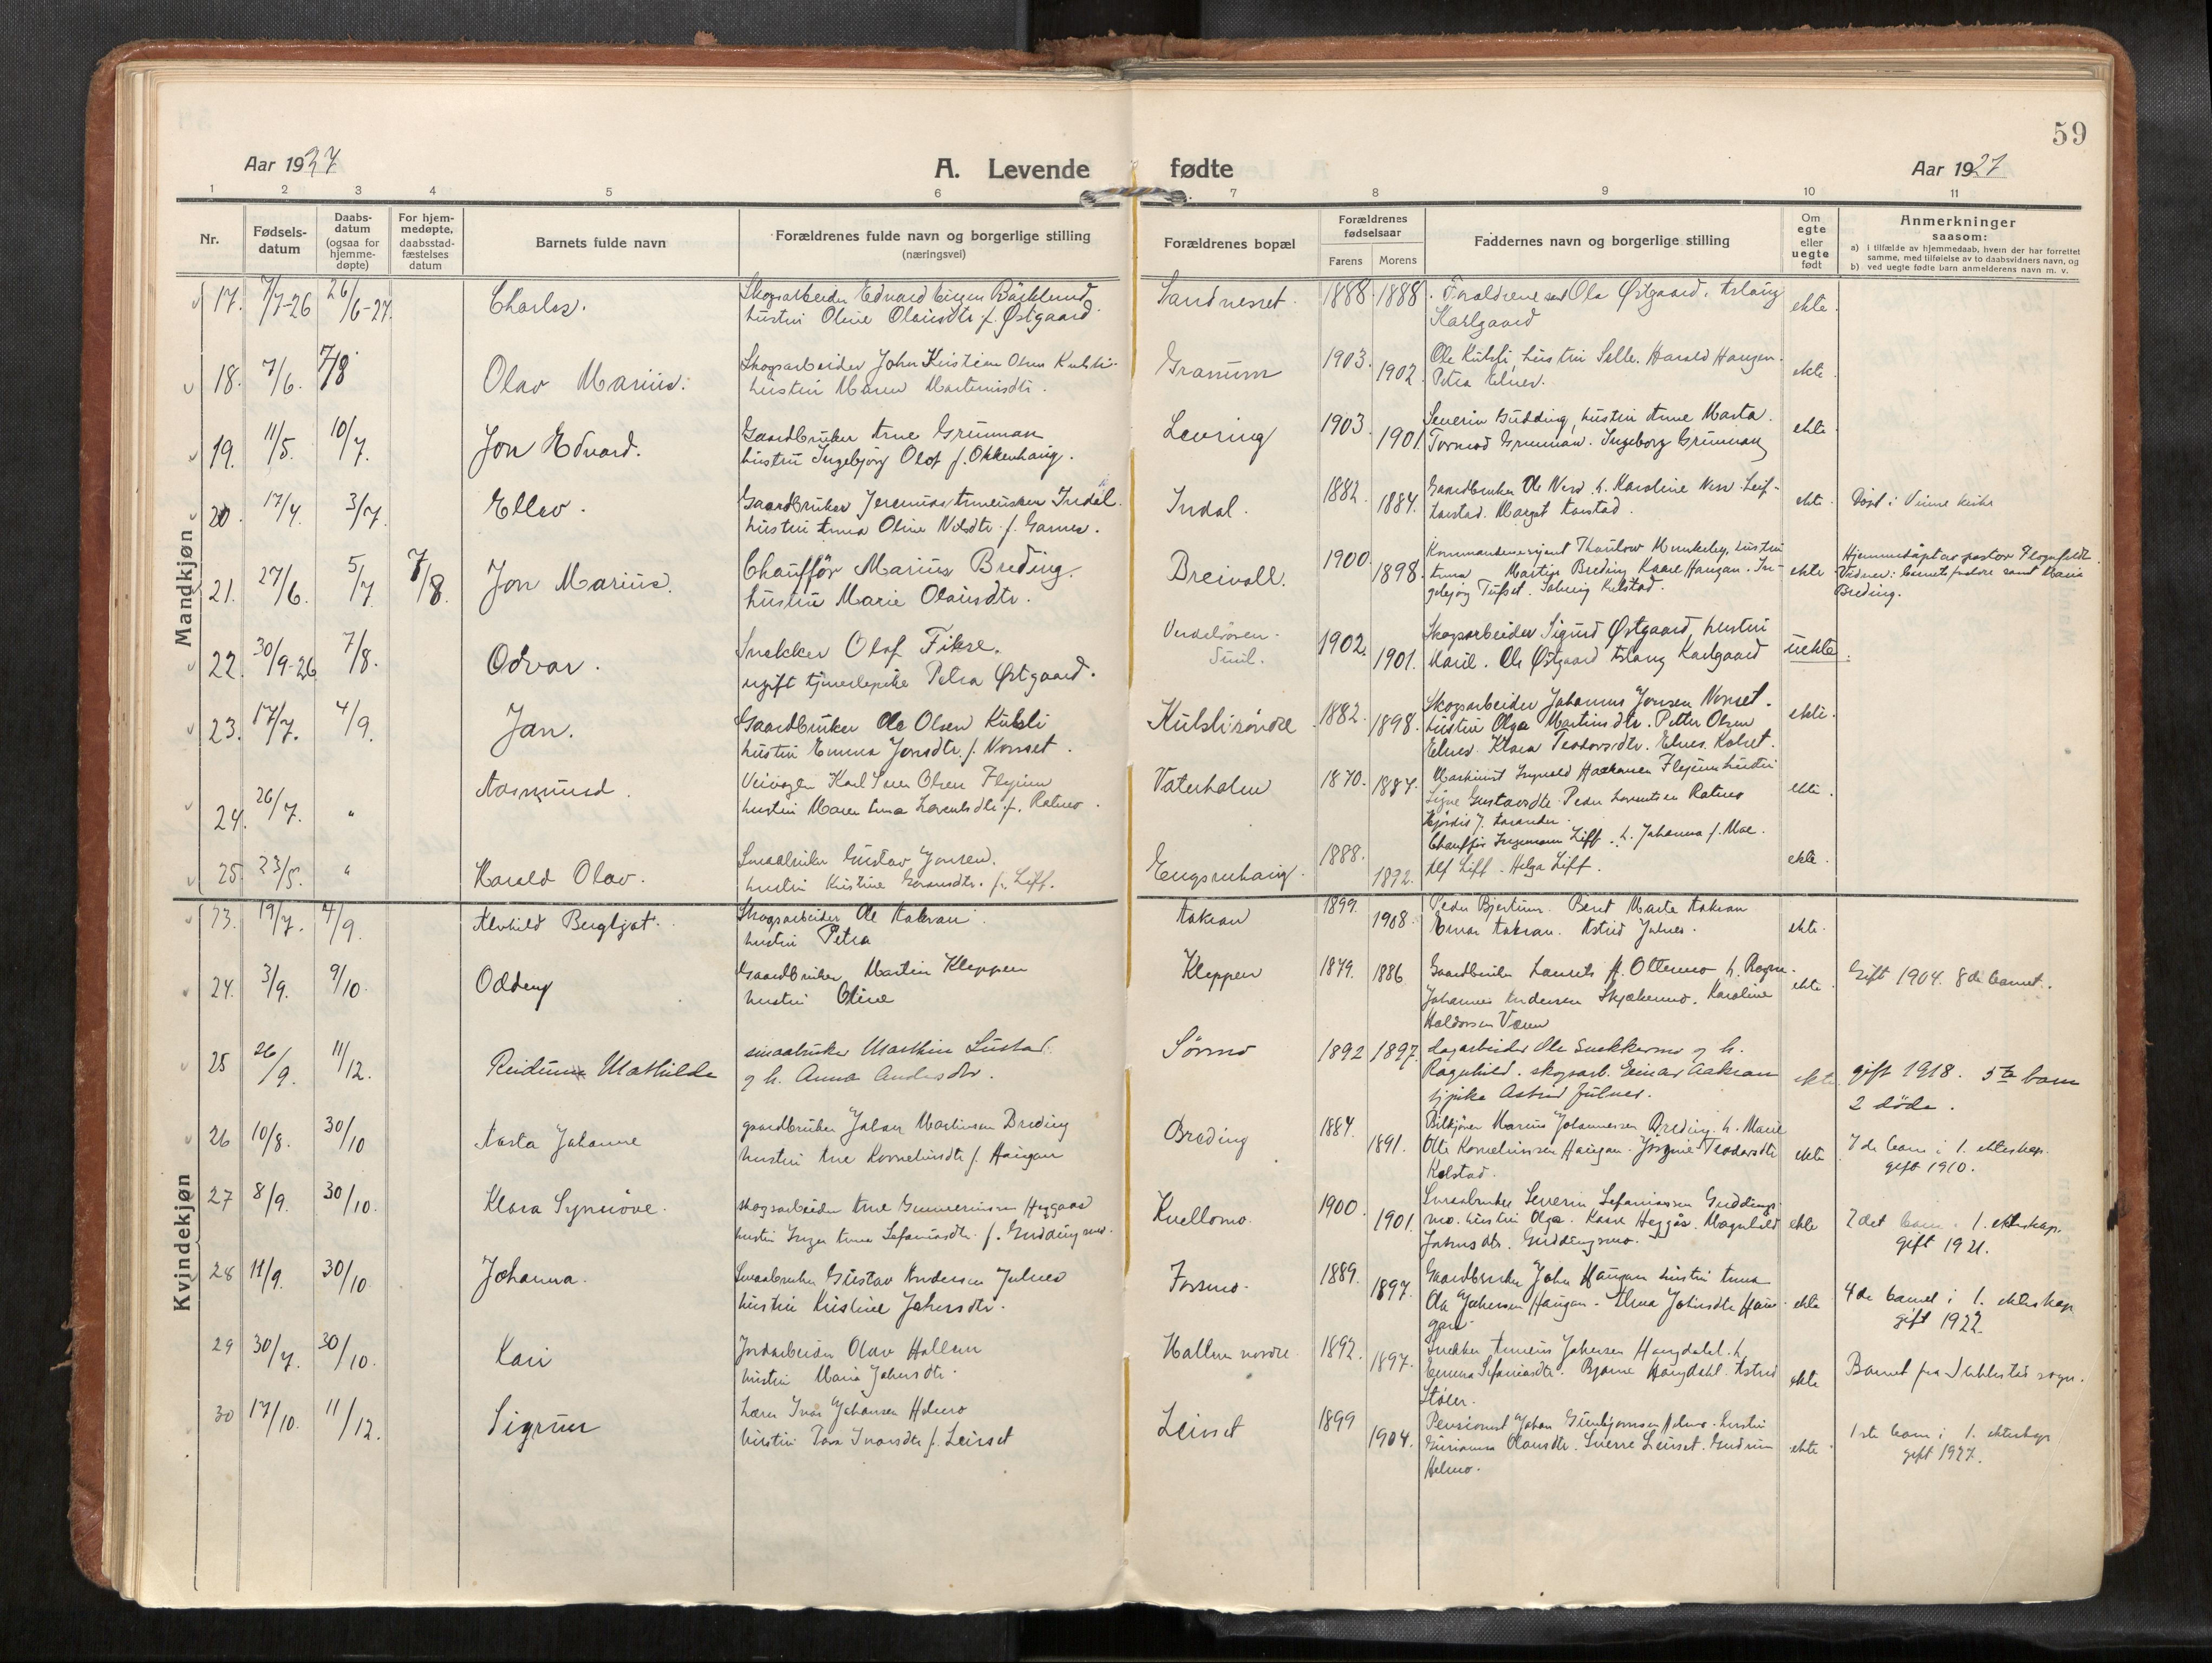 59
Aar 1927
A. Levende fødte
Aar 1927
1 2 3 4 5 6 7 8 9 10 11
Nr.
Fødsels-
datum
Daabs-
datum
(ogsaa for
hjemme-
døpte)
For hjem-
medøpte,
daabsstad-
fæstelses
datum
Barnets fulde navn
Forældrenes fulde navn og borgerlige stilling
(næringsvei)
Forældrenes bopæl
Forældrenes
fødselsaar
Farens Morens
Faddernes navn og borgerlige stilling
Om
egte
eller
uegte
født
Anmerkninger
saasom:
a) i tilfælde av hjemmedaab, hvem der har forrettet
samme, med tilføielse av to daabsvidners navn, og
b) ved uegte fødte barn anmelderens navn m. v.
Mandkjøn
17. 7/7-26 26/6-27 Charles. Skogsarbeider Edvard Backlund Sandnesset. 1888 1888. Foreldrene samt Ola Østgaard, Aslaug ekte.
hustru Oline Olausdtr. f. Østgaard Karlgaard
18. 7/6. 7/8 Olav Marius. Skogsarbeider John Kristian Olsen Kulsli Granum 1903. 1902. Ole Kulsli, hustru Harald Haugan. ekte.
hustru Maren Martinusdtr. Petra Elnes.
19. 11/5. 10/7. Jon Edvard. Gaardbruker Arne Grunnan Levring 1903. 1901. Severin Gudding, hustru Anne Marta. ekte.
hustru Ingebjørg Olof f. Okkenhaug. Tormod Grunnan. Ingeborg Grunnan
20. 17/4. 3/7. Ellev. Gaardbruker Jeremias Arneussen Indal. Indal. 1882. 1884. Gaardbruker Ole h. Karoline Leif ekte. Døpt i Vinne kirke
hustru Anna Oline Nilsdtr. f. Garnes. Karstad. Margit Karstad.
21. 27/6. 5/7. 7/8. Jon Marius. Chauffør Marius Breding. Breivoll. 1900. 1898. Kommandersersjant Thaulow Munkeby, hustru ekte Hjemmedøpt av pastor
hustru Marie Olausdtr. Anna Martin Breding Kaare Haugan. In- Vidner: barnets fadere samt Maria
gebjørg Tufset. Solveig Kulstad. Breding.
22. 30/9-26 7/8. Odvar. Snekker Olaf Fikse. Verdalsøren. 1902. 1901. Skogsarbeider Sigurd Østgaard, hustru uekte.
ugift tjenestepike Petra Østgaard. Marie. Ole Østgaard Aslaug Karlgaard
23. 17/7. 4/9. Jan. Gaardbruker Ole Olsen Kulsli Kulsli søndre 1882. 1898. Skogsarbeider Johannes Jonsen Vonset. ekte.
hustru Emma Jonsdtr. f. Vonset. hustru Olga Martinsdtr. Petter Olsen
Elnes. Klara Teodorsdtr. Elnes. Kolset.
24. 26/7. " Aasmund. Karl Olsen Flyum Vaterholm 1870. 1887. Maskinist Haakonsen Flyum hustru ekte.
hustru Maren Anna Lorentsdtr. f. Ratnes. Signe Gustavsdtr. Peder Lorentsen Ratnes
Hjørdis J.
25. 23/5. " Harald Olav. Smaabruker Gustav Jonsen. 1888. 1892. Chauffør Ingemann Liff. h. Johanna f. Moe. ekte.
hustru Kristine f. Liff. Alf Liff. Helga Liff.
Kvindekjøn
23. 19/7. 4/9. Alvhild Bergljot. Skogsarbeider Ole Aakran. Aakran 1899. 1908. Peder Bjertun. Beret Marta Aakran ekte.
hustru Petra Einar Aakran. Astrid Julnes.
24. 3/9. 9/10. Oddny Gaardbruker Martin Kleppen Kleppen 1879. 1886 Gaardbruker Laurits A. Ottermo h. Ragna. ekte. Gift 1904. 8de barnet.
hustru Oline Johannes Andersen Skjækermo. Karoline
Haldorsen Væren
25 26/9. 11/12. Reidunn Mathilde smaabruker Mathias Sørmo 1892 1897. dagarbeider Ole Snekkermo og h. ekte gift 1918. 5te barn
og h. Anna Andersdtr. Ragnhild. skogsarb. Einar Aakran 2 døde.
tj.pike Astrid Julnes.
26 10/8. 30/10 Aasta Johanne gaardbruker Johan Martinsen Breding Breding 1884. 1891. Bilkjører Marius Johannessen Breding. h. Marie ekte 7de barn i 1. ekteskap.
hustru Ane Korneliusdtr. f. Haugan Ole Korneliussen Haugan. Jørgine Teodorsdtr. gift 1910.
Kolstad.
27 8/9. 30/10. Klara Synnøve. skogsarbeider Arne Gunneriussen Heggaas Kvellomo. 1900. 1901. Smaabruker Severin Sefaniassen Guddings- ekte 2det barn i 1. ekteskap.
hustru Inger Anna Sefaniasdtr. f. Guddingsmo. mo. hustru Olga. Kaare Heggås. Magnhild gift 1921.
Johnsdtr. Guddingsmo.
28 11/9. 30/10. Johanna. Smaabruker Gustav Andersen Julnes Forsmo. 1889. 1897. Gaardbruker John Haugan hustru Anna ekte 4de barnet i 1. ekteskap
hustru Kristine Johnsdtr. Ola Johnsen Haugan. Anna Johnsdtr. Hau- gift 1922.
gan.
29 30/7. 30/10. Kari Jordarbeider Olav Hallem Hallem nordre 1892. 1897. Snekker Arneus Johnsen Haugdahl. h. ekte Barnet fra Stiklestad sogn.
hustru Maria Johnsdtr. Emma Sefaniasdtr. Bjarne Haugdahl. Astrid
Støler.
30 17/10. 11/12. Sigrun Lærer Ivar Johansen Helmo Leirset 1899 1904. Pensionist Johan Helmo. hustru ekte 1ste barn i 1. ekteskap
hustru Tora Ivarsdtr. f. Leirset Olausdtr. Sverre Leirset. Gudrun gift 1927.
Helmo.